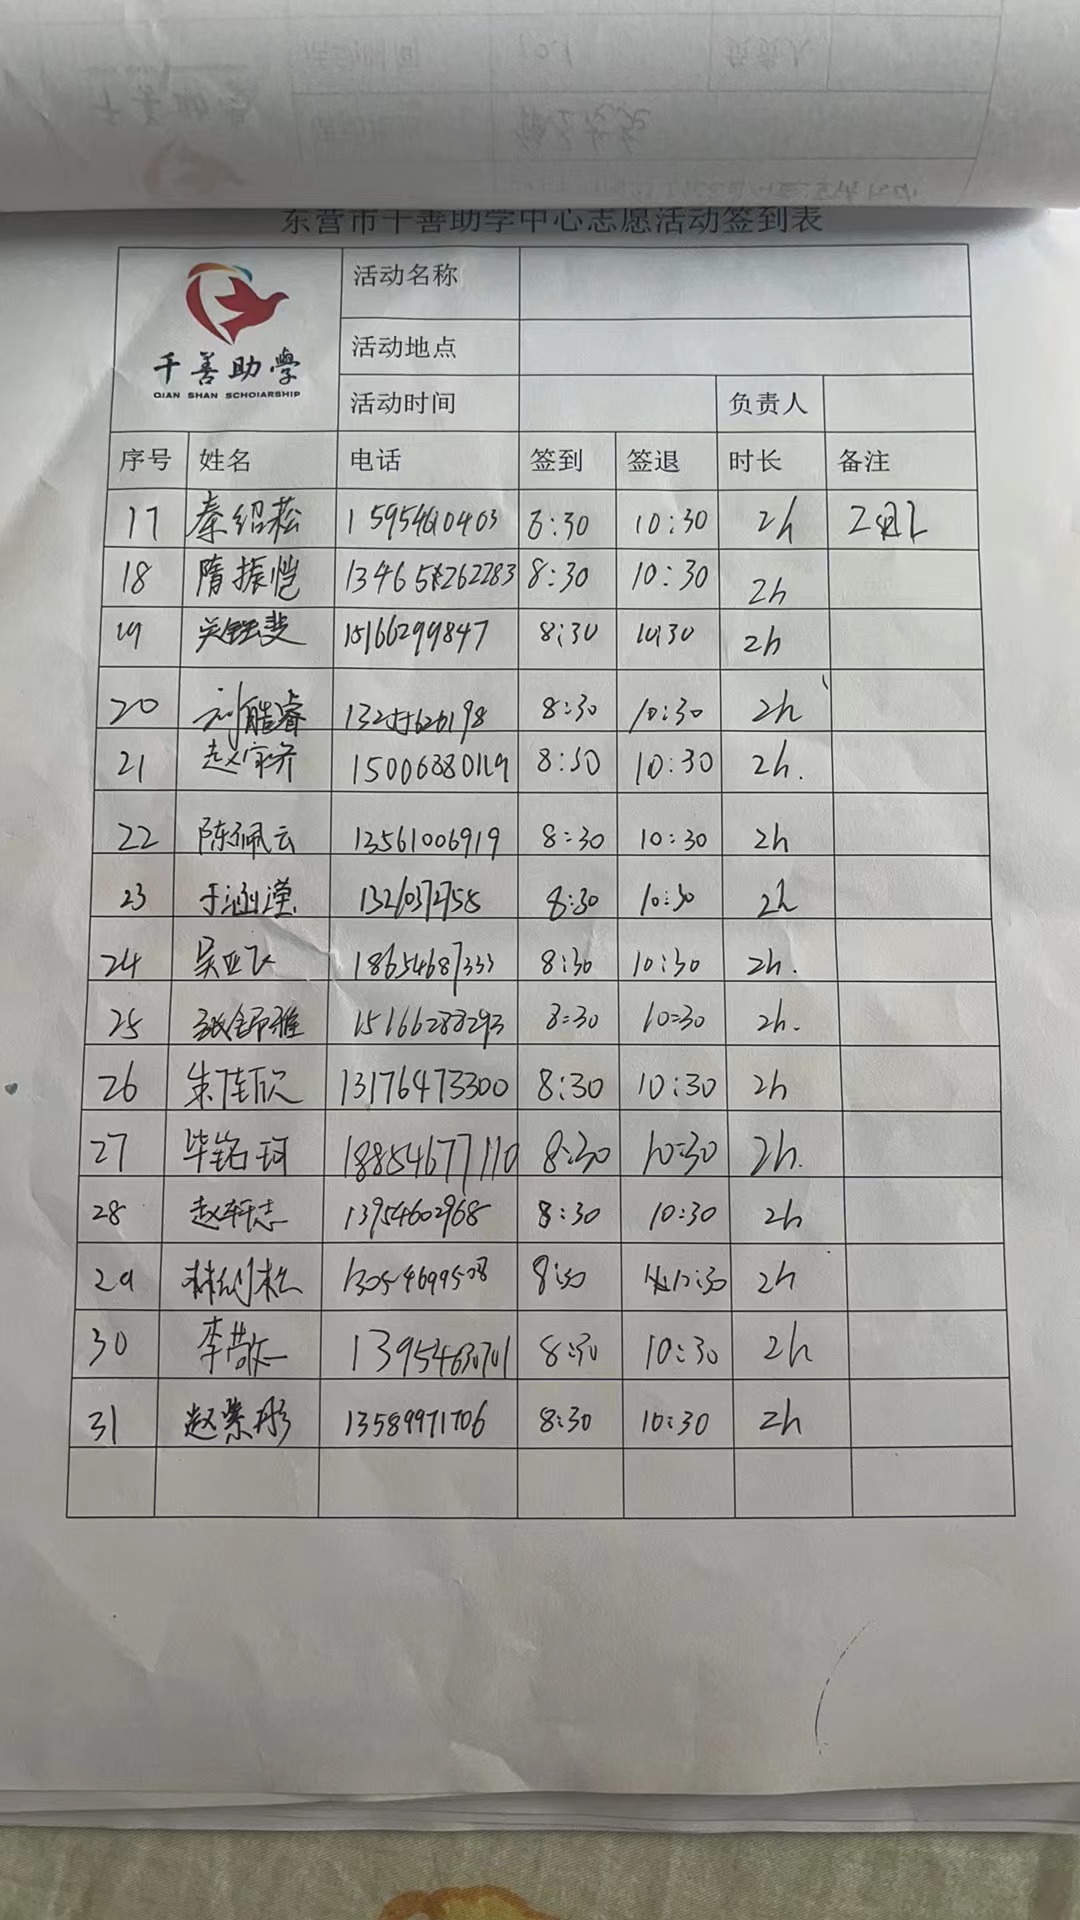 东营市千善助学中心志愿活动签到表
千善助學
QIAN SHAN SCHOIARSHIP
活动名称
活动地点
活动时间 负责人
序号 姓名 电话 签到 签退 时长 备注
17 秦绍菘 15954610403 8:30 10:30 2h
18 隋振恺 8:30 10:30 2h
19 15166299847 8:30 10:30 2h
20 刘皓睿 8:30 10:30 2h
21 赵家齐 8:30 10:30 2h.
22 陈佩云 13561006919 8:30 10:30 2h
23 于涵滢 8:30 10:30 2h
24 吴亚飞 18654687333 8:30 10:30 2h.
25 张舒雅 15166288293 8:30 10:30 2h.
26 朱佳欣 13176473300 8:30 10:30 2h
27 毕铭珂 18854677110 8:30 10:30 2h.
28 赵轩志 13954602968 8:30 10:30 2h
29 8:30 10:30 2h
30 李敬 13954630701 8:30 10:30 2h
31 赵紫彤 13589971706 8:30 10:30 2h